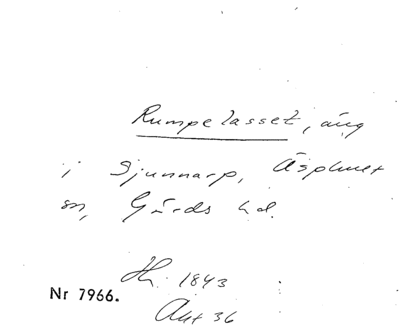 Rumpelasset, äng
i Sjunnarp, Äsphult
sn, Gärds hd.
1843
Nr 7966.
Akt 36